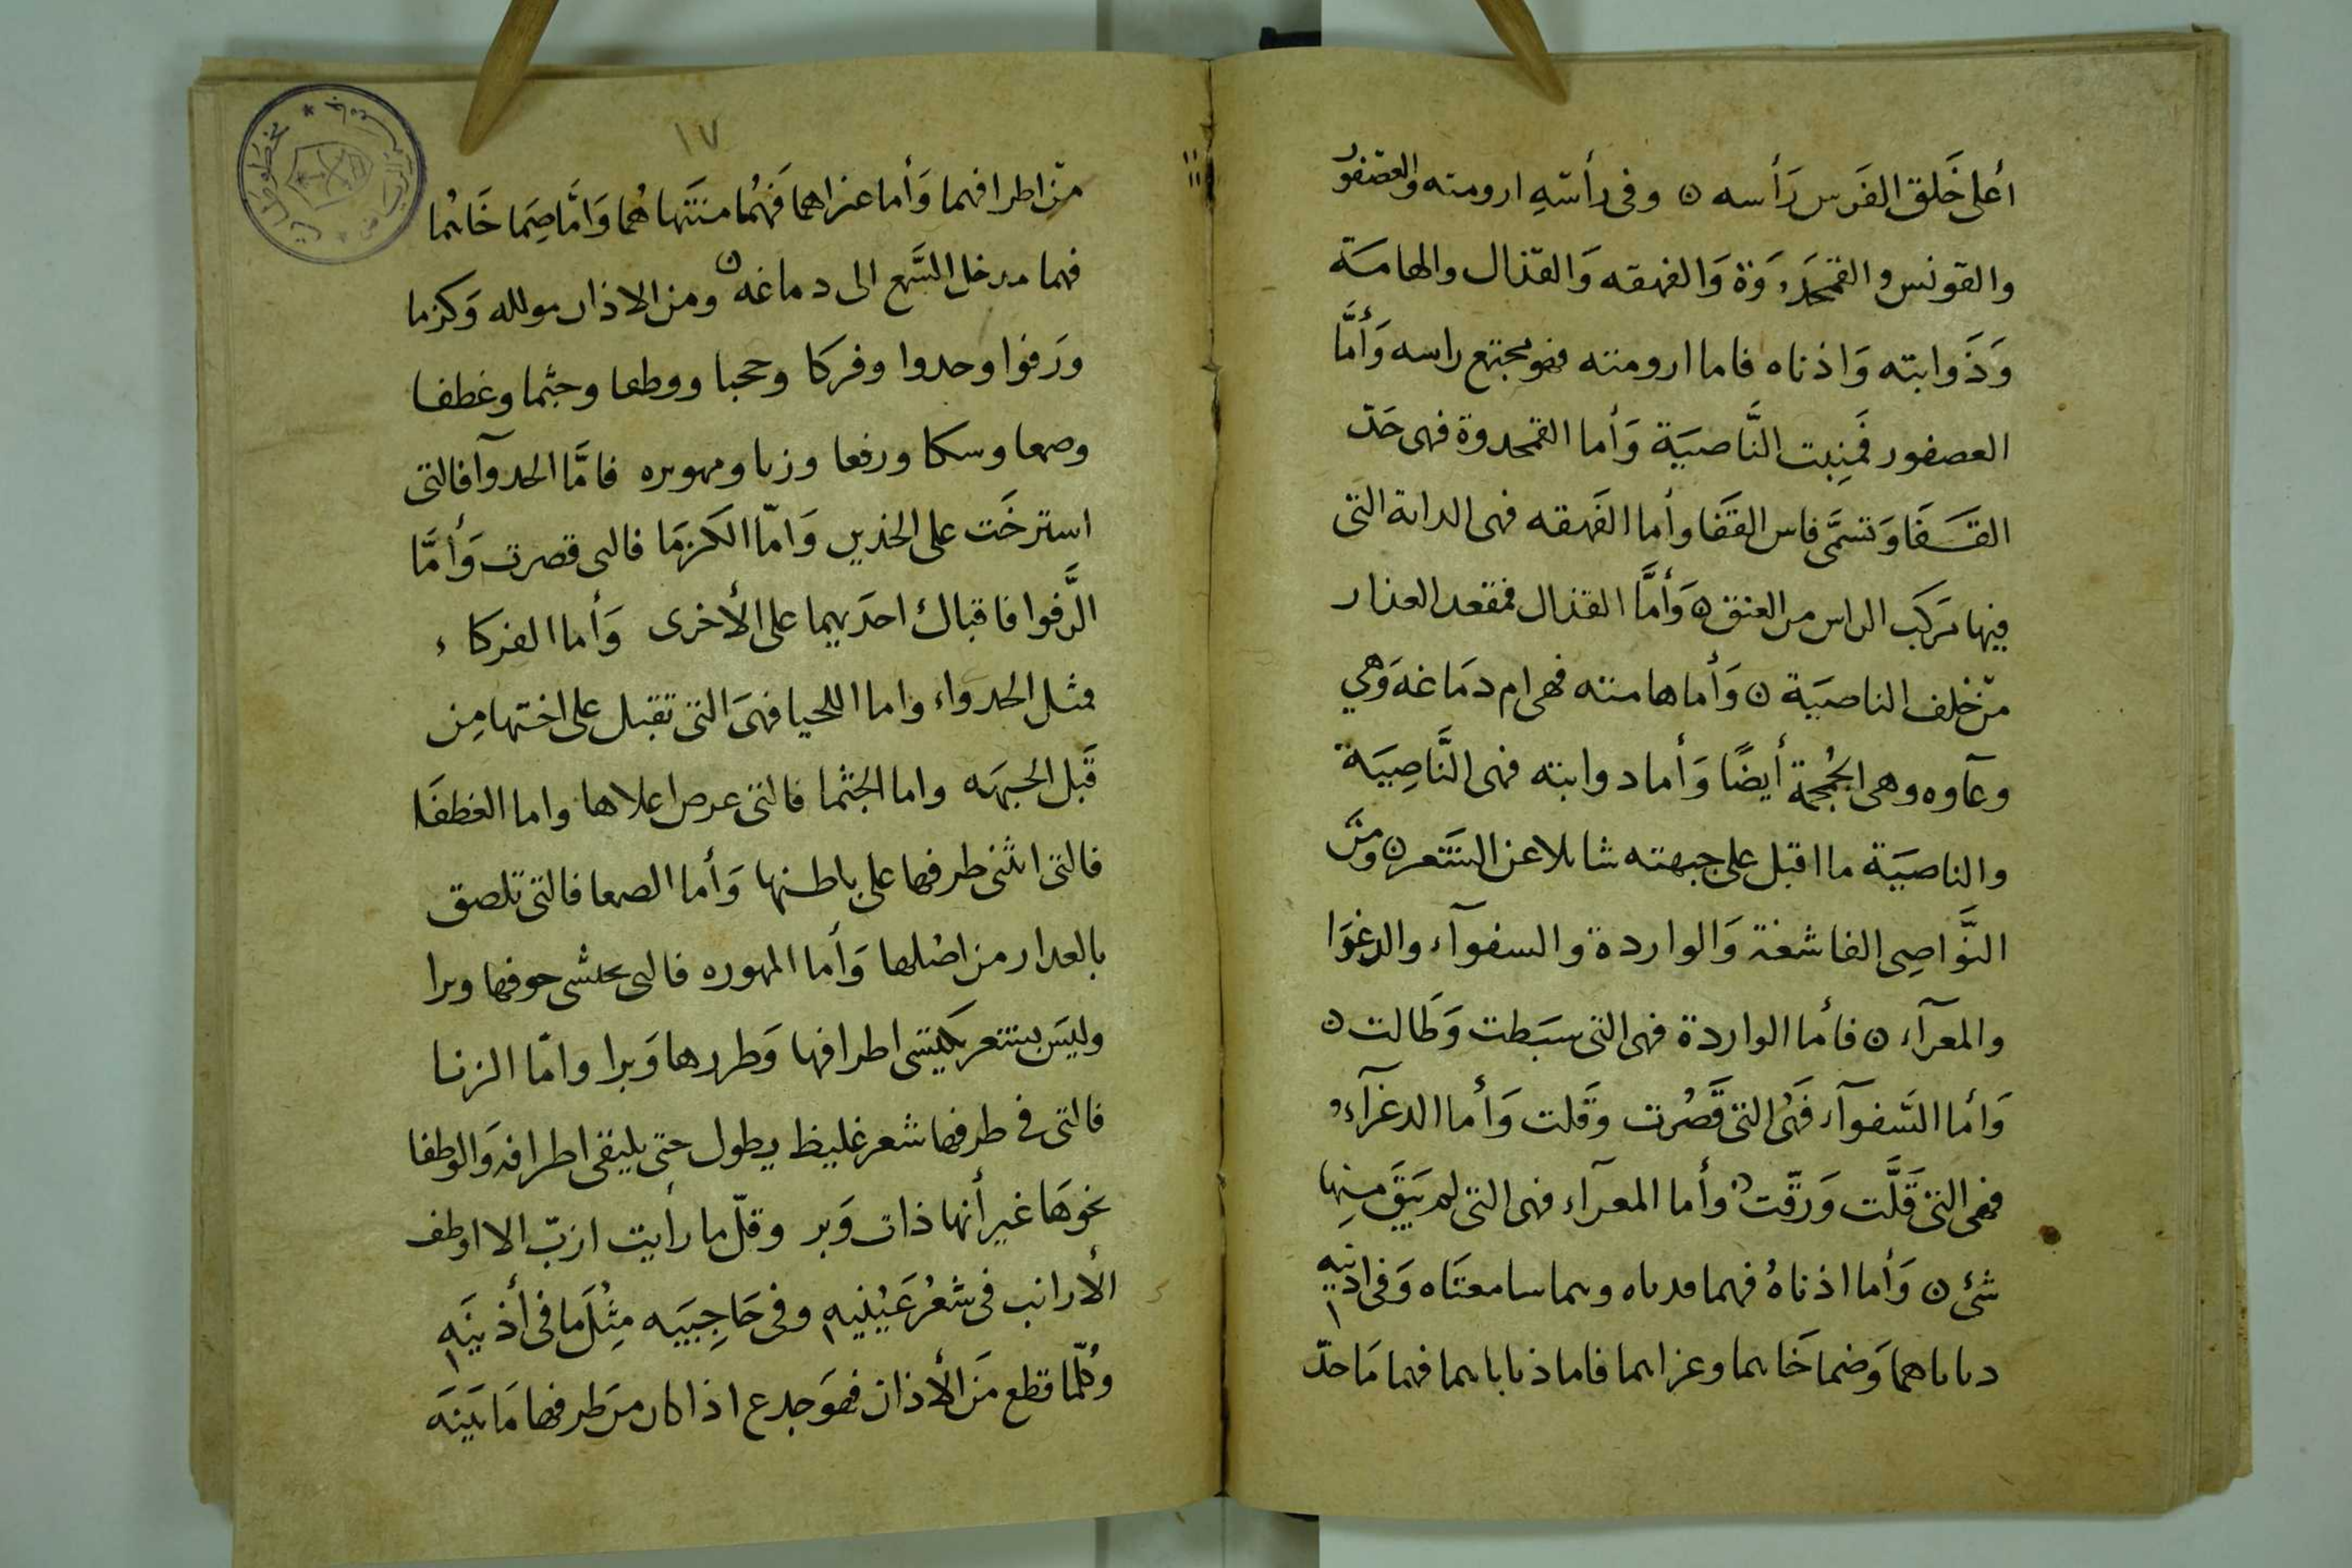 أعلى خَلق الفَرس رَأسه ن وفى رأسهِ ارومته والعصفور
والقونس والقمحَدوَة وَالفهقه وَالقذال والهامة
وَذَوابته وَاذناه فاما ارومته فهو مجتمع راسه وَأمَّا
العصفور فمَنِبت النَّاصيَة وَأما القمحدوة فهى حَدّ
القَفَا وَتسمَّى فاس القَفَا وأما الفَهقه فهى الداىة التى
فيها تركب الراس من العنق ن وَأمَّا القذال فمقعد العذار
من خَلف الناصيَة ن وَأما هامته فهى ام دمَاغه وَهي
وعآوه وهى الجُمجمة أيضًا وَأما دوابته فهى النَّاصِيَة
والناصيَة ما اقبل على جبهته شاىلا عن الشعر ن ومنَ
النَّواصِى الفاشغة وَالواردة والسفوآء والدغوَا
والمعرآء ن فأما الواردة فهى التى سبَطت وَطَالت ن
وَأما السَّفوآء فَهى التى قَصُرت وقَلت وَأما الدغرآء
فهى التى قَلَّت وَرقّت ن وأما المعرآء فهى التى لم يَبقَ مِنها
شئ ن وَأما اذناهُ فهما قدىاه وىىما سامعتَاه وَفى اذنيه
دىاىاهما وَضما خَاىىما وعزاىىما فاما ذىاباىىما فهما مَا حدّ
١٧
مِن اطرافهما وَأما عنراهما فَهُما منتَهاهُما وَامَّا صِمَا خَاىُما
فهما مدخل السَّمع الى دماغه ن ومن الاذان مولله وَكزما
ورَفوا وحدوا وفركا وحجبا ووطعا وجثما وغطفا
وصمعا وسكا ورفعا وزىا ومهوىره فامَّا الحدوآ فالتى
استرخَت على الخدين وَامّا الكَزمَا فالتى قصرت وَأمَّا
الرَّفوا فاقبالك احدَيهما على الأخرى وَأما الفركاء
فمثل الحدوَاء واما اللحيا فهىَ التى تقبل على اختها مِن
قَبل الجبهَه واما الجثما فالتى عرص اعلاها واما الغطفَا
فالتى انثنى طرفها على باطنها وَأما الصمعا فالتى تلصق
بالعدار من اصْلها وَأما المهوره فالتى ىحتشى حوفها وبرا
وليسَ بشعر يكتسى اطرافها وَطررها وَبرا وامّا الزبا
فالتى فى طرفها شعر غليظ يطول حتى يلتقى اطرافه وَالوطفا
نحوهَا غير أنها ذات وَبر وقلّ ما رأيت ازبّ الا اوطف
الأرانب فى شعْر عَيْنيه وفى حَاجِبيَه مِثْلَ مَا فى أذنيَه
وَكلّما قطع منَ الأذان فهوَ جدع اذا كان من طرفها مَا بَينَه